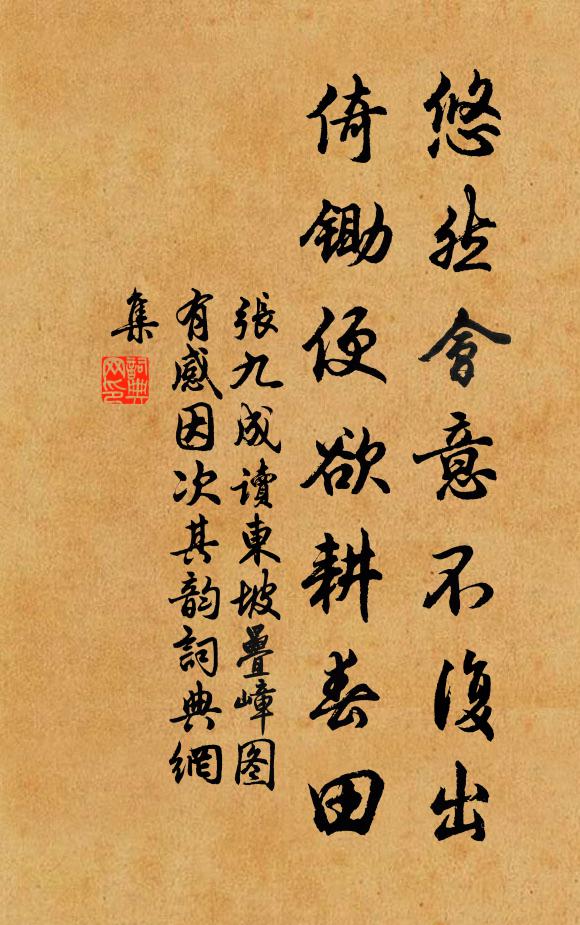 悠然會意不復出
倚鋤便欲耕春田
張九成讀東坡疊嶂图
有感因次其韵詞典網
集
詞典
网印